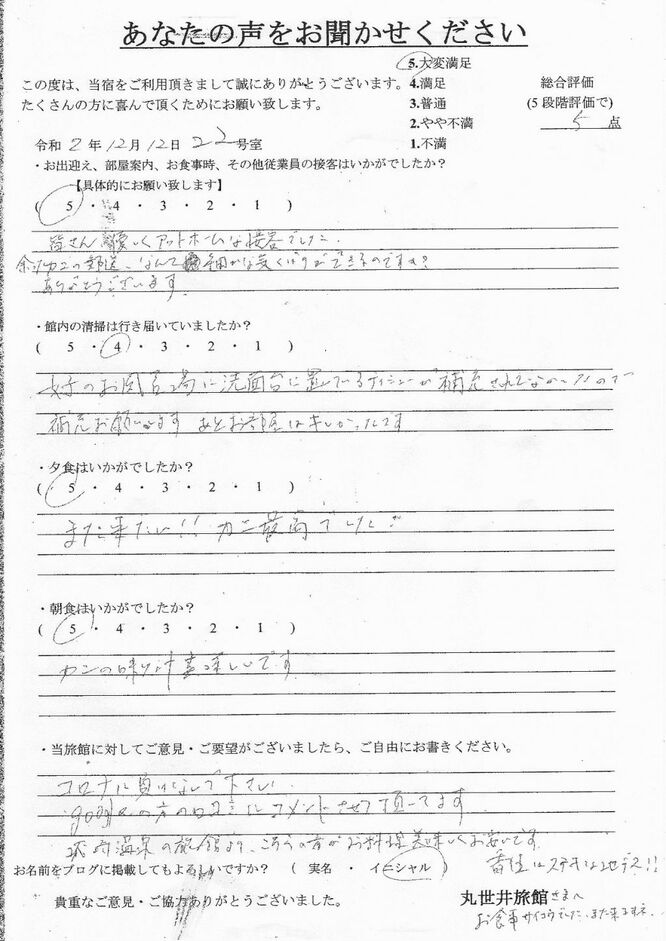 あなたの声をお聞かせください
5.大変満足
この度は、当宿をご利用頂きまして誠にありがとうございます。 4.満足 総合評価
たくさんの方に喜んで頂くためにお願い致します。 3.普通 (5段階評価で)
2.やや不満 5点
令和2年12月12日 22号室 1.不満
・お出迎え、部屋案内、お食事時、その他従業員の接客はいかがでしたか?
【具体的にお願い致します】
( 5 ・ 4 ・ 3 ・ 2 ・ 1 )
皆さん優しくアットホームな接客でした。
余ったカニの郵送、なんて細かな気くばりができるのですか?
ありがとうございます
・館内の清掃は行き届いていましたか?
( 5 ・ 4 ・ 3 ・ 2 ・ 1 )
女子のお風呂場に洗面台に置いているティシューが補充されてなかったので
補充お願いします あとお部屋はキレイかったです
・夕食はいかがでしたか?
( 5 ・ 4 ・ 3 ・ 2 ・ 1 )
また来たい!! カニ最高でした
・朝食はいかがでしたか?
( 5 ・ 4 ・ 3 ・ 2 ・ 1 )
カニの味噌汁美味しいです
・当旅館に対してご意見・ご要望がございましたら、ご自由にお書きください。
コロナに負けないで下さい
googleの方の口コミにコメントさせて頂いてます
城崎温泉の旅館より、こちらの方がお料理美味しくお安いです。
お名前をブログに掲載してもよろしいですか? ( 実名 ・ イニシャル ) 香住はステキなとこです!!
貴重なご意見・ご協力ありがとうございました。 丸世井旅館さまへ
お食事サイコウでした。また来ますネ